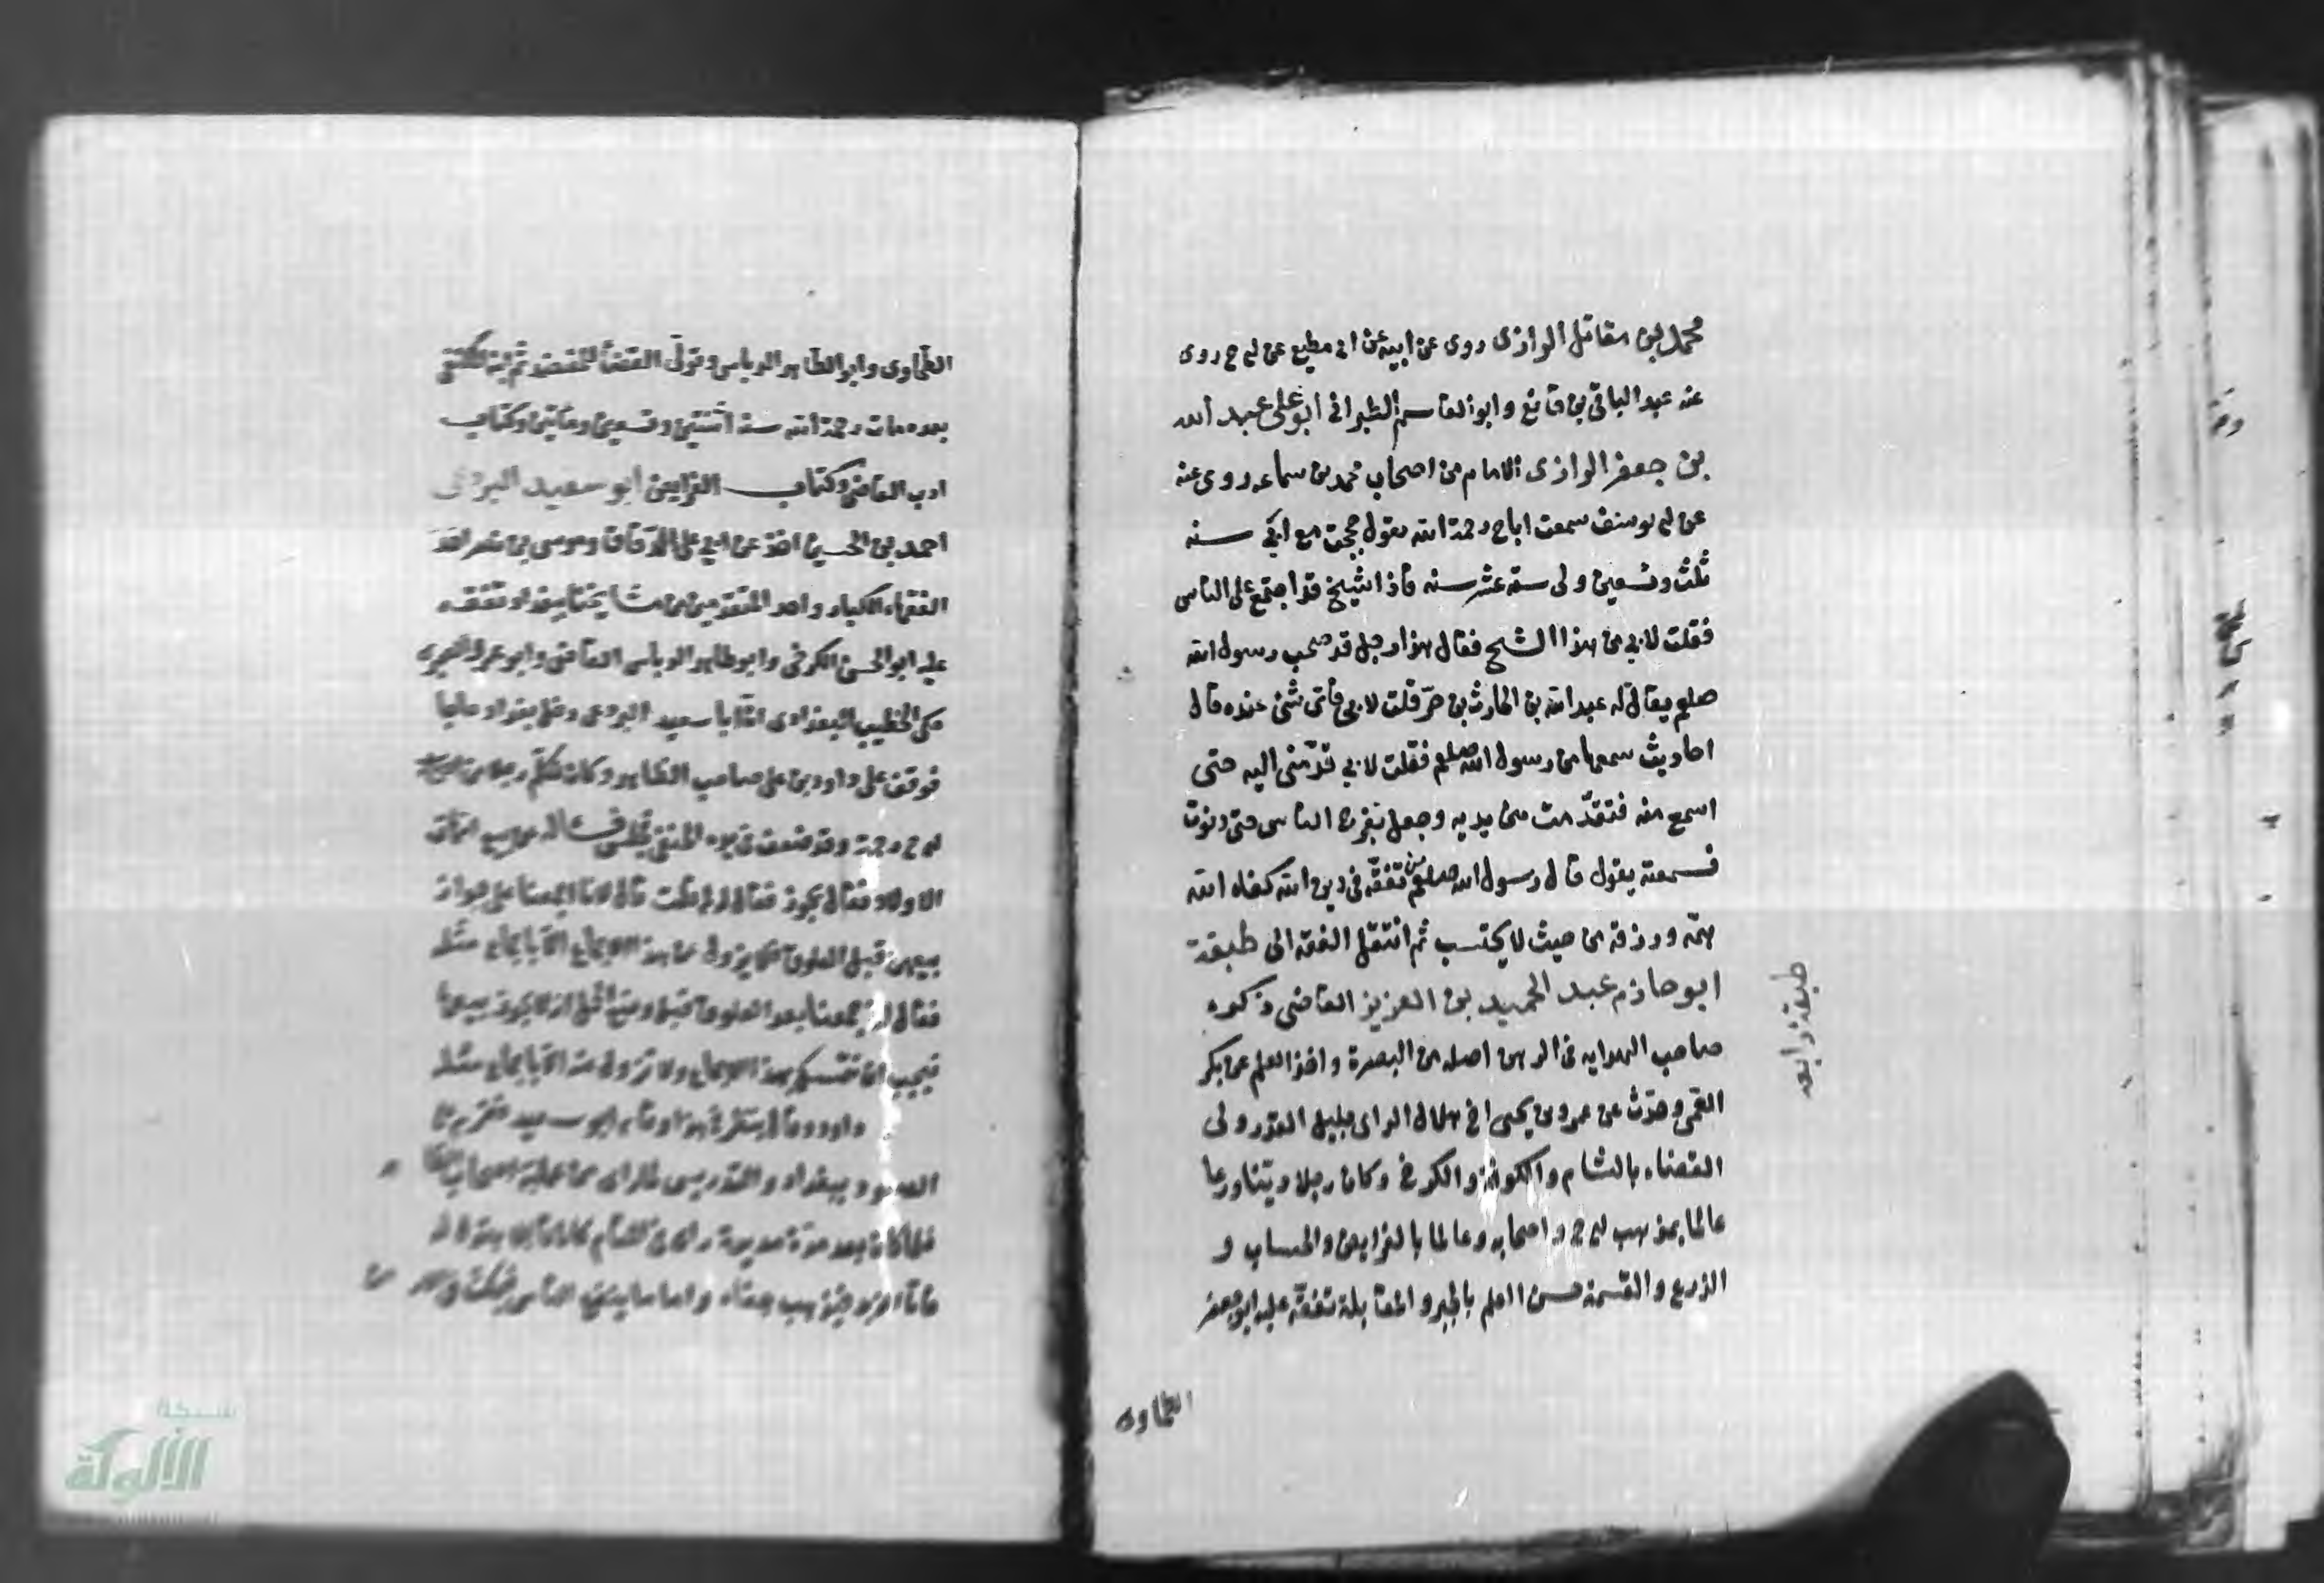 محمد بن مقاتل الرازى روى عن ابيه عن ابى مطيع عن ابى ح روى
عنه عبد الباقى بن قانع وابو القاسم الطبرانى ابو على عبد الله
بن جعفر الرازى الامام من اصحاب محمد بن سماعه روى عنه
عن ابى يوسف سمعت ابا ح رحمة الله يقول حججت مع ابى سنه
ثلث وتسعين ولى ستة عشر سنه فاذا شيخ قد اجتمع على الناس
فقلت لابى من هذا الشيخ فقال هذا رجل قد صحب رسول الله
صلعم يقال له عبد الله بن الحارث بن جزء فقلت لابى فاى شئ عنده قال
احاديث سمعها من رسول الله صلعم فقلت لابى قدمنى اليه حتى
اسمع منه فتقدم من بين يديه وجعل يفرج الناس حتى دنوت
فسمعته يقول قال رسول الله صلعم من تفقه فى دين الله كفاه الله
همه ورزقه من حيث لا يحتسب ثم انتقل الفقه الى طبقة
ابو حازم عبد الحميد بن العزيز القاضى ذكره
صاحب الهدايه فى الرهن اصله من البصرة واخذ العلم عن بكر
القمى وحدث عن عمرو بن يحيى اخى هلال الراى جليل القدر ولى
القضاء بالشام والكوفة والكرخ وكان رجلا دينا ورعا
عالما بمذهب ابى ح واصحابه وعالما بالفرايض والحساب و
الذرع والقسمة حسن العلم بالجبر والمقابلة تفقه عليه ابو جعفر
الطحاوى
طبقة رابعه
الطحاوى وابو الطاهر الدباس وتولى القضا للمعتضد ثم لابنه المكتفى
بعده مات رحمة الله سنة اثنتين وتسعين ومائتين وكتاب
ادب القاضى وكتاب الفرايض ابو سعيد البردعى
احمد بن الحسين اخذ عن ابى على الدقاق وموسى بن نصر احد
الفقهاء الكبار واحد المتقدمين من مشايخنا ببغداد تفقه
عليه ابو الحسن الكرخى وابو طاهر الدباس القاضى وابو عمرو الطبرى
حكى الخطيب البغدادى ان ابا سعيد البردعى دخل بغداد حاجا
فوقف على داود بن على صاحب الظاهر وكان يكلم رجلا من اصحاب
ابى ح رحمة وقد ضعف فى يده الحنفى فجلس فساله عن بيع امهات
الاولاد فقال يجوز فقال له لم قلت قال لانا اجمعنا على جواز
بيعهن قبل العلوق فلا يزول عن هذا الاجماع الا باجماع مثله
فقال له اجمعنا بعد العلوق قبل وضع الحمل انه لا يجوز بيعها
فيجب ان نتمسك بهذا الاجماع ولا نزول عنه الا باجماع مثله
داود وقال ينظر فى هذا وقام ابو سعيد فعزم على
القعود ببغداد والتدريس لما راى من غلبة اصحاب
فلما كان بعد مدة مديدة راى فى المنام كان قائلا يقول له
فاما الزبد فيذهب جفاء واما ما ينفع الناس فيمكث فى
شبكة
الألوكة